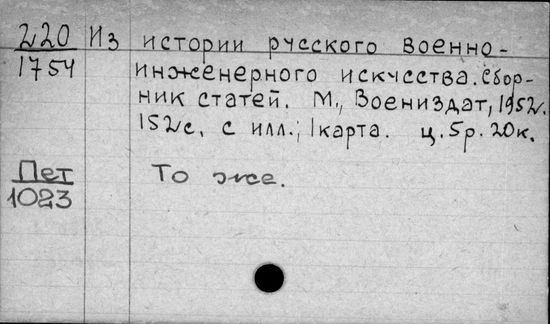 220 Из истории русского военно-
1754 инженерного искусства. Сбор-
ник статей. М., Воениздат, 1952.
152с. с илл.; 1 карта. ц. 5р. 20к.
Пет То же.
1023